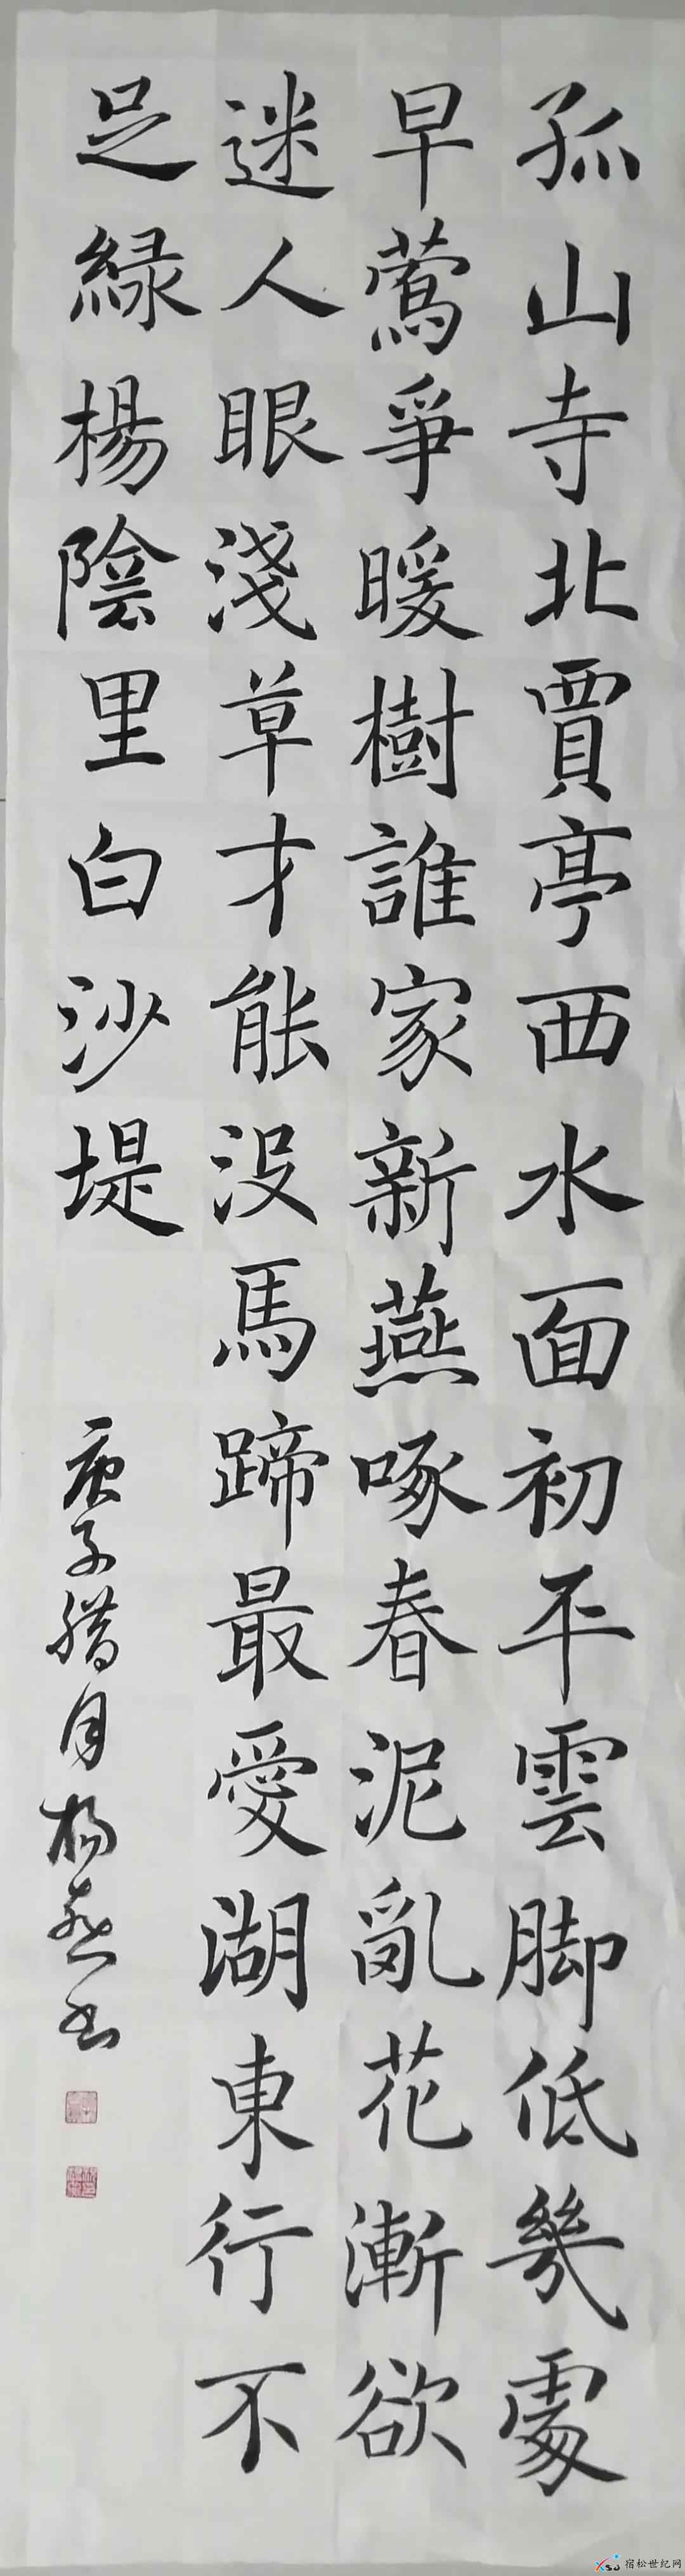 孤山寺北賈亭西水面初平雲脚低幾處
早鶯爭暖樹誰家新燕啄春泥亂花漸欲
迷人眼淺草才能没馬蹄最愛湖東行不
足綠楊陰里白沙堤
庚子腊月楊燕书
宿松世纪网